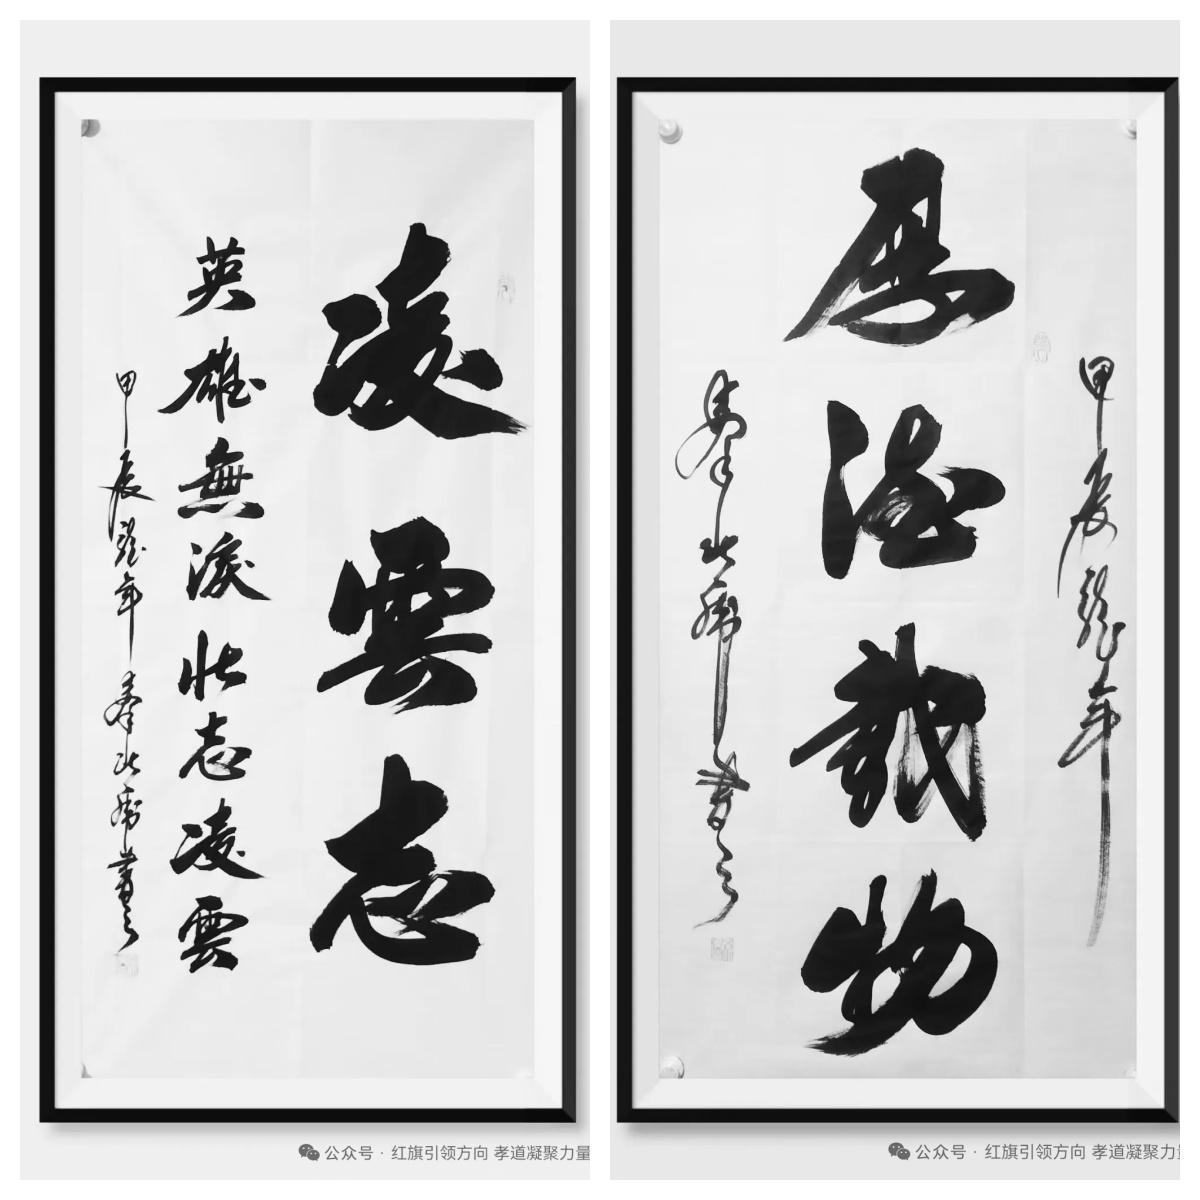 凌雲志
英雄無淚壯志凌雲
甲辰龍年 書
公众号 · 红旗引领方向 孝道凝聚力量
甲辰龍年
厚德載物
書
公众号 · 红旗引领方向 孝道凝聚力